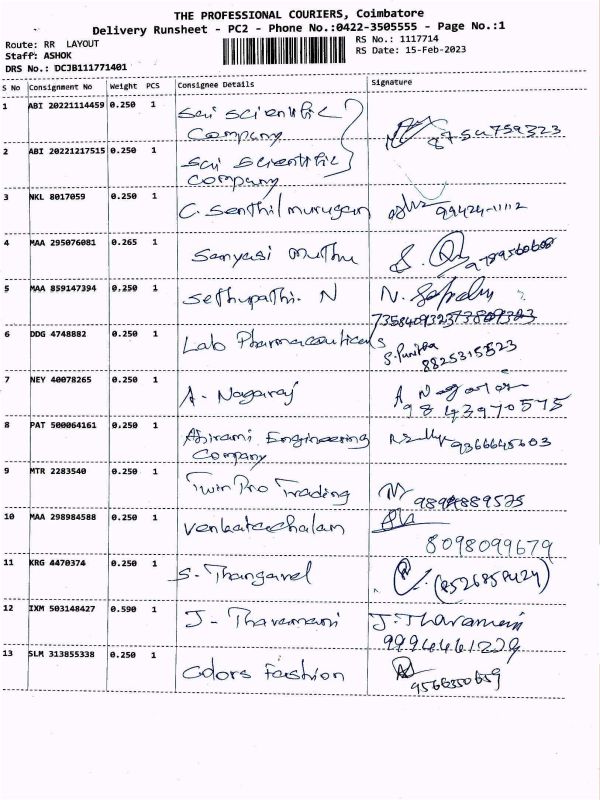 THE PROFESSIONAL COURIERS, Coimbatore
Delivery Runsheet - PC2 - Phone No.:0422-3505555 - Page No.:1
Route: RR LAYOUT
RS No.: 1117714
Staff: ASHOK
RS Date: 15-Feb-2023
DRS No.: DCJB111771401
S No Consignment No Weight PCS Consignee Details Signature
1 ABI 20221114459 0.250 1 Sai Scientific
Company
8754759323
2 ABI 20221217515 0.250 1 Sai Scientific
Company
3 NKL 8017059 0.250 1 C. Senthil murugan 99424-11112
4 MAA 295076081 0.265 1 Sanyasi Muthu
5 MAA 859147394 0.250 1 Sethupathi. N N.
6 DDG 4748882 0.250 1 Lab Pharmaceuticals S. Punitha
8825315523
7 NEY 40078265 0.250 1 A. Nagaraj A Nagaraj
9843970575
8 PAT 500064161 0.250 1 Abirami Engineering
Company
9366645603
9 MTR 2283540 0.250 1 Twin Pro Trading
10 MAA 298984588 0.250 1 Venkatachalam
8098099679
11 KRG 4470374 0.250 1 S. Thangavel
12 IXM 503148427 0.590 1 J- Tharamani J. Tharamani
9994461229
13 SLM 313855338 0.250 1 Colors Fashion
9566350659